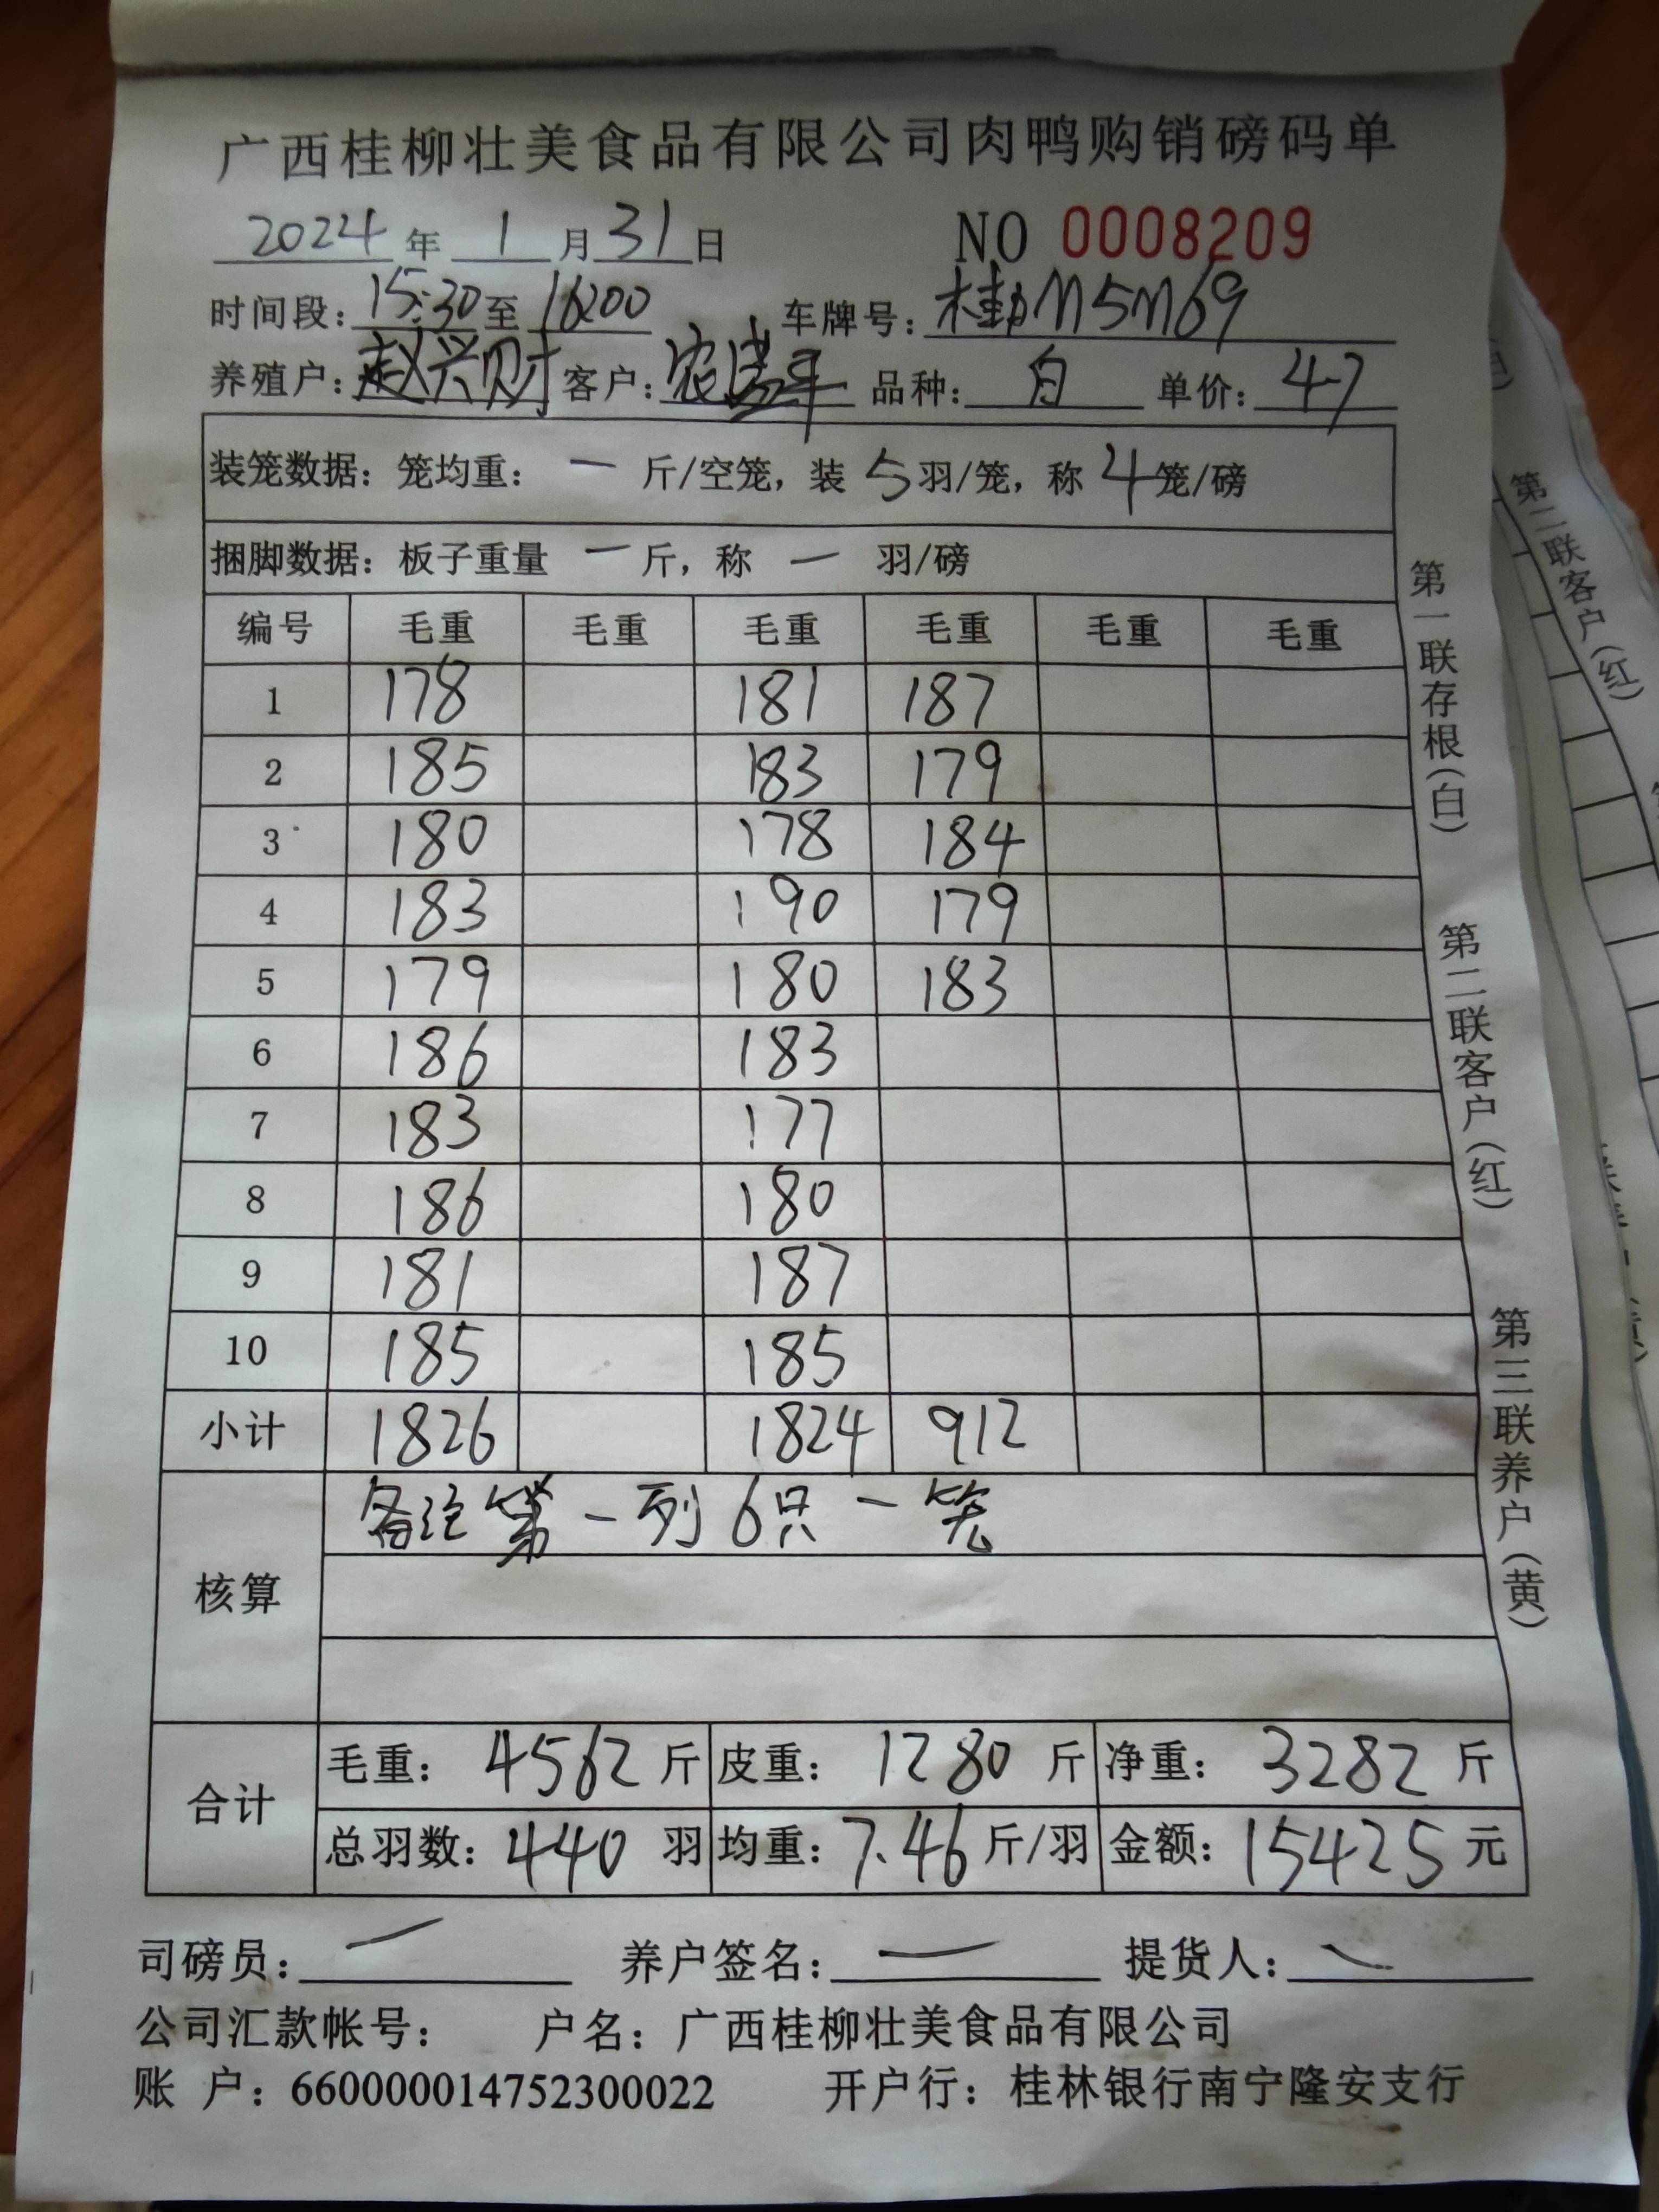 广西桂柳壮美食品有限公司肉鸭购销磅码单
2024年 1月31日 NO 0008209
时间段:15:30至16:00 车牌号:桂M5M69
养殖户:赵兴财 客户:农 品种:白 单价:4.7
装笼数据:笼均重: 一 斤/空笼,装 5 羽/笼,称 4 笼/磅
捆脚数据:板子重量 一 斤,称 一 羽/磅
编号 毛重 毛重 毛重 毛重 毛重 毛重
1 178 181 187
2 185 183 179
3 180 178 184
4 183 190 179
5 179 180 183
6 186 183
7 183 177
8 186 180
9 181 187
10 185 185
小计 1826 1824 912
核算 备注第一列6只一笼
合计 毛重: 4562 斤 皮重: 1280 斤 净重: 3282 斤
总羽数: 440 羽 均重: 7.46 斤/羽 金额: 15425 元
司磅员: 一 养户签名: 一 提货人: 一
公司汇款帐号: 户名:广西桂柳壮美食品有限公司
账 户:660000014752300022 开户行:桂林银行南宁隆安支行
第一联存根(白)
第二联客户(红)
第三联养户(黄)
第二联客户(红)